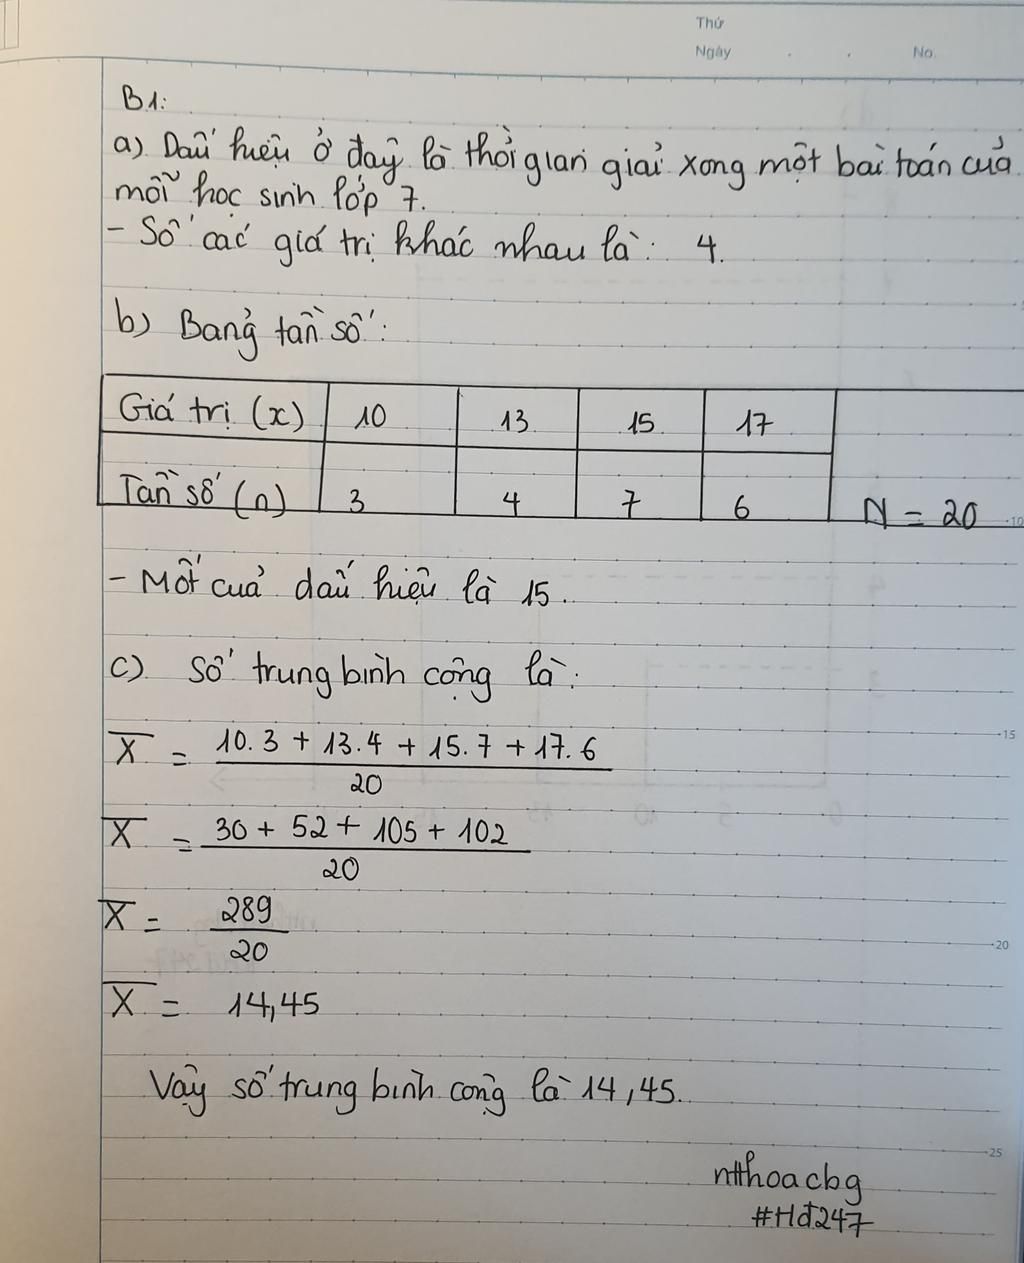 Thứ
Ngày . . No.
B1:
a) Dấu hiệu ở đây là thời gian giải xong một bài toán của
mỗi học sinh lớp 7.
- Số các giá trị khác nhau là: 4.
b) Bảng tần số:
Giá trị (x) 10 13 15 17
Tần số (n) 3 4 7 6 N = 20
10
- Mốt của dấu hiệu là 15.
c) Số trung bình cộng là:
15
X̅ = (10.3 + 13.4 + 15.7 + 17.6)/20
X̅ = (30 + 52 + 105 + 102)/20
X̅ = 289/20
20
X̅ = 14,45
Vậy số trung bình cộng là 14,45.
25
ntthoacbg
#Hđ247